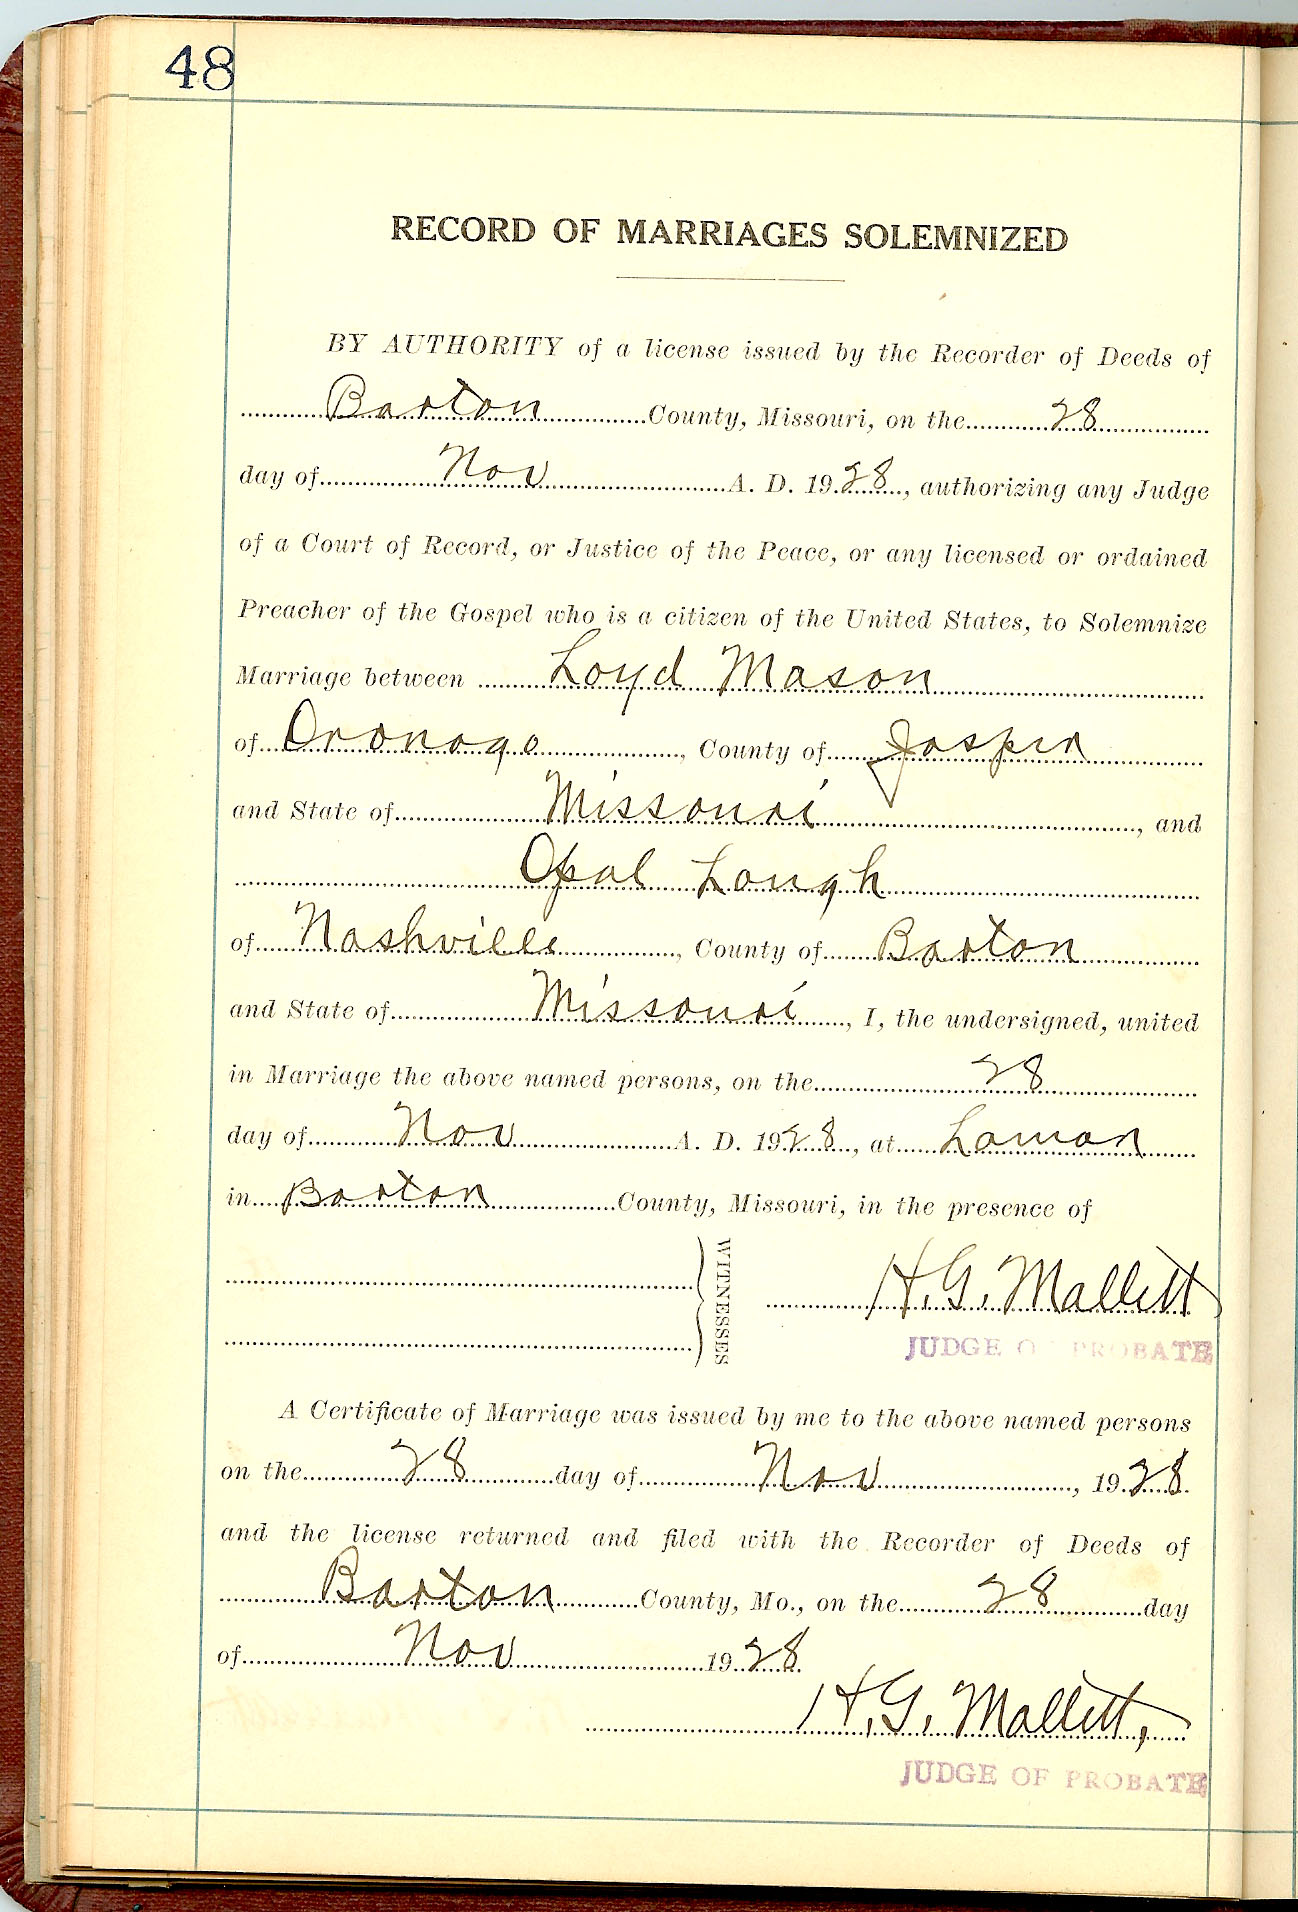 48
RECORD OF MARRIAGES SOLEMNIZED
BY AUTHORITY of a license issued by the Recorder of Deeds of
Barton County, Missouri, on the 28
day of Nov A. D. 1928, authorizing any Judge
of a Court of Record, or Justice of the Peace, or any licensed or ordained
Preacher of the Gospel who is a citizen of the United States, to Solemnize
Marriage between Loyd Mason
of Oronogo, County of Jasper
and State of Missouri, and
Opal Lough
of Nashville, County of Barton
and State of Missouri, I, the undersigned, united
in Marriage the above named persons, on the 28
day of Nov A. D. 1928, at Lamar
in Barton County, Missouri, in the presence of
WITNESSES
H. G. Mallett
JUDGE OF PROBATE
A Certificate of Marriage was issued by me to the above named persons
on the 28 day of Nov, 1928
and the license returned and filed with the Recorder of Deeds of
Barton County, Mo., on the 28 day
of Nov 1928
H. G. Mallett,
JUDGE OF PROBATE